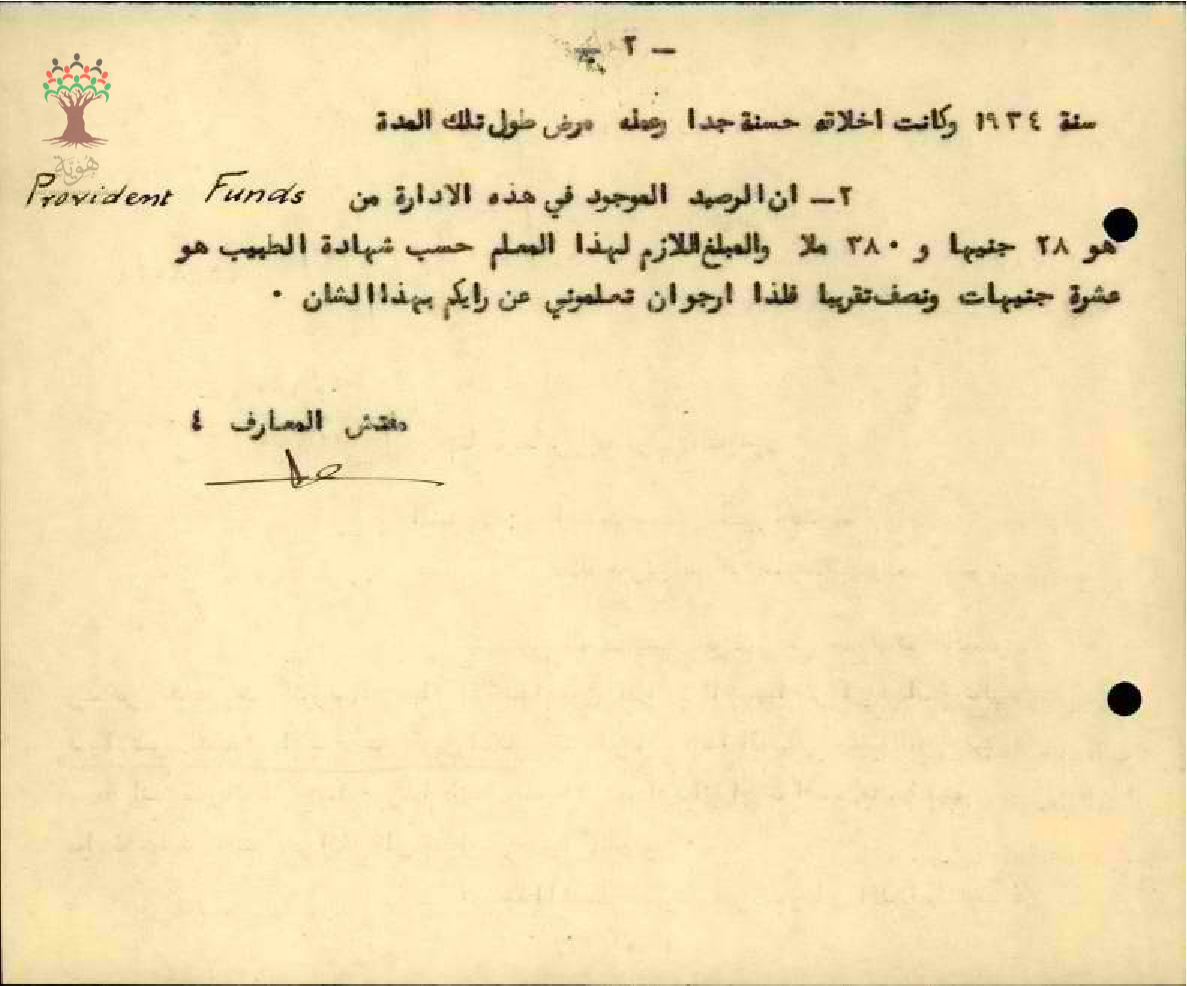 — ٢ —
هوية
سنة ١٩٣٤ وكانت اخلاقه حسنة جدا وعمله مرض طول تلك المدة
٢ــ ان الرصيد الموجود في هذه الادارة من Provident Funds
هو ٢٨ جنيها و ٣٨٠ ملا والمبلغ اللازم لهذا المعلم حسب شهادة الطبيب هو
عشرة جنيهات ونصف تقريبا فلذا ارجو ان تعلموني عن رايكم بهذا الشان ٠
مفتش المعارف ٤